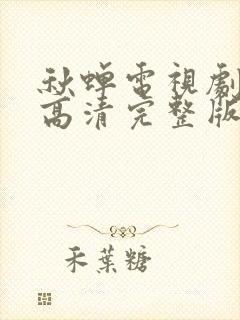 秋蟬電視劇
高清完整版
禾葉糖